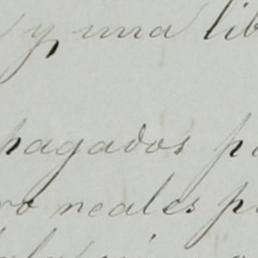 y, una lib
pagados p
ro reales p